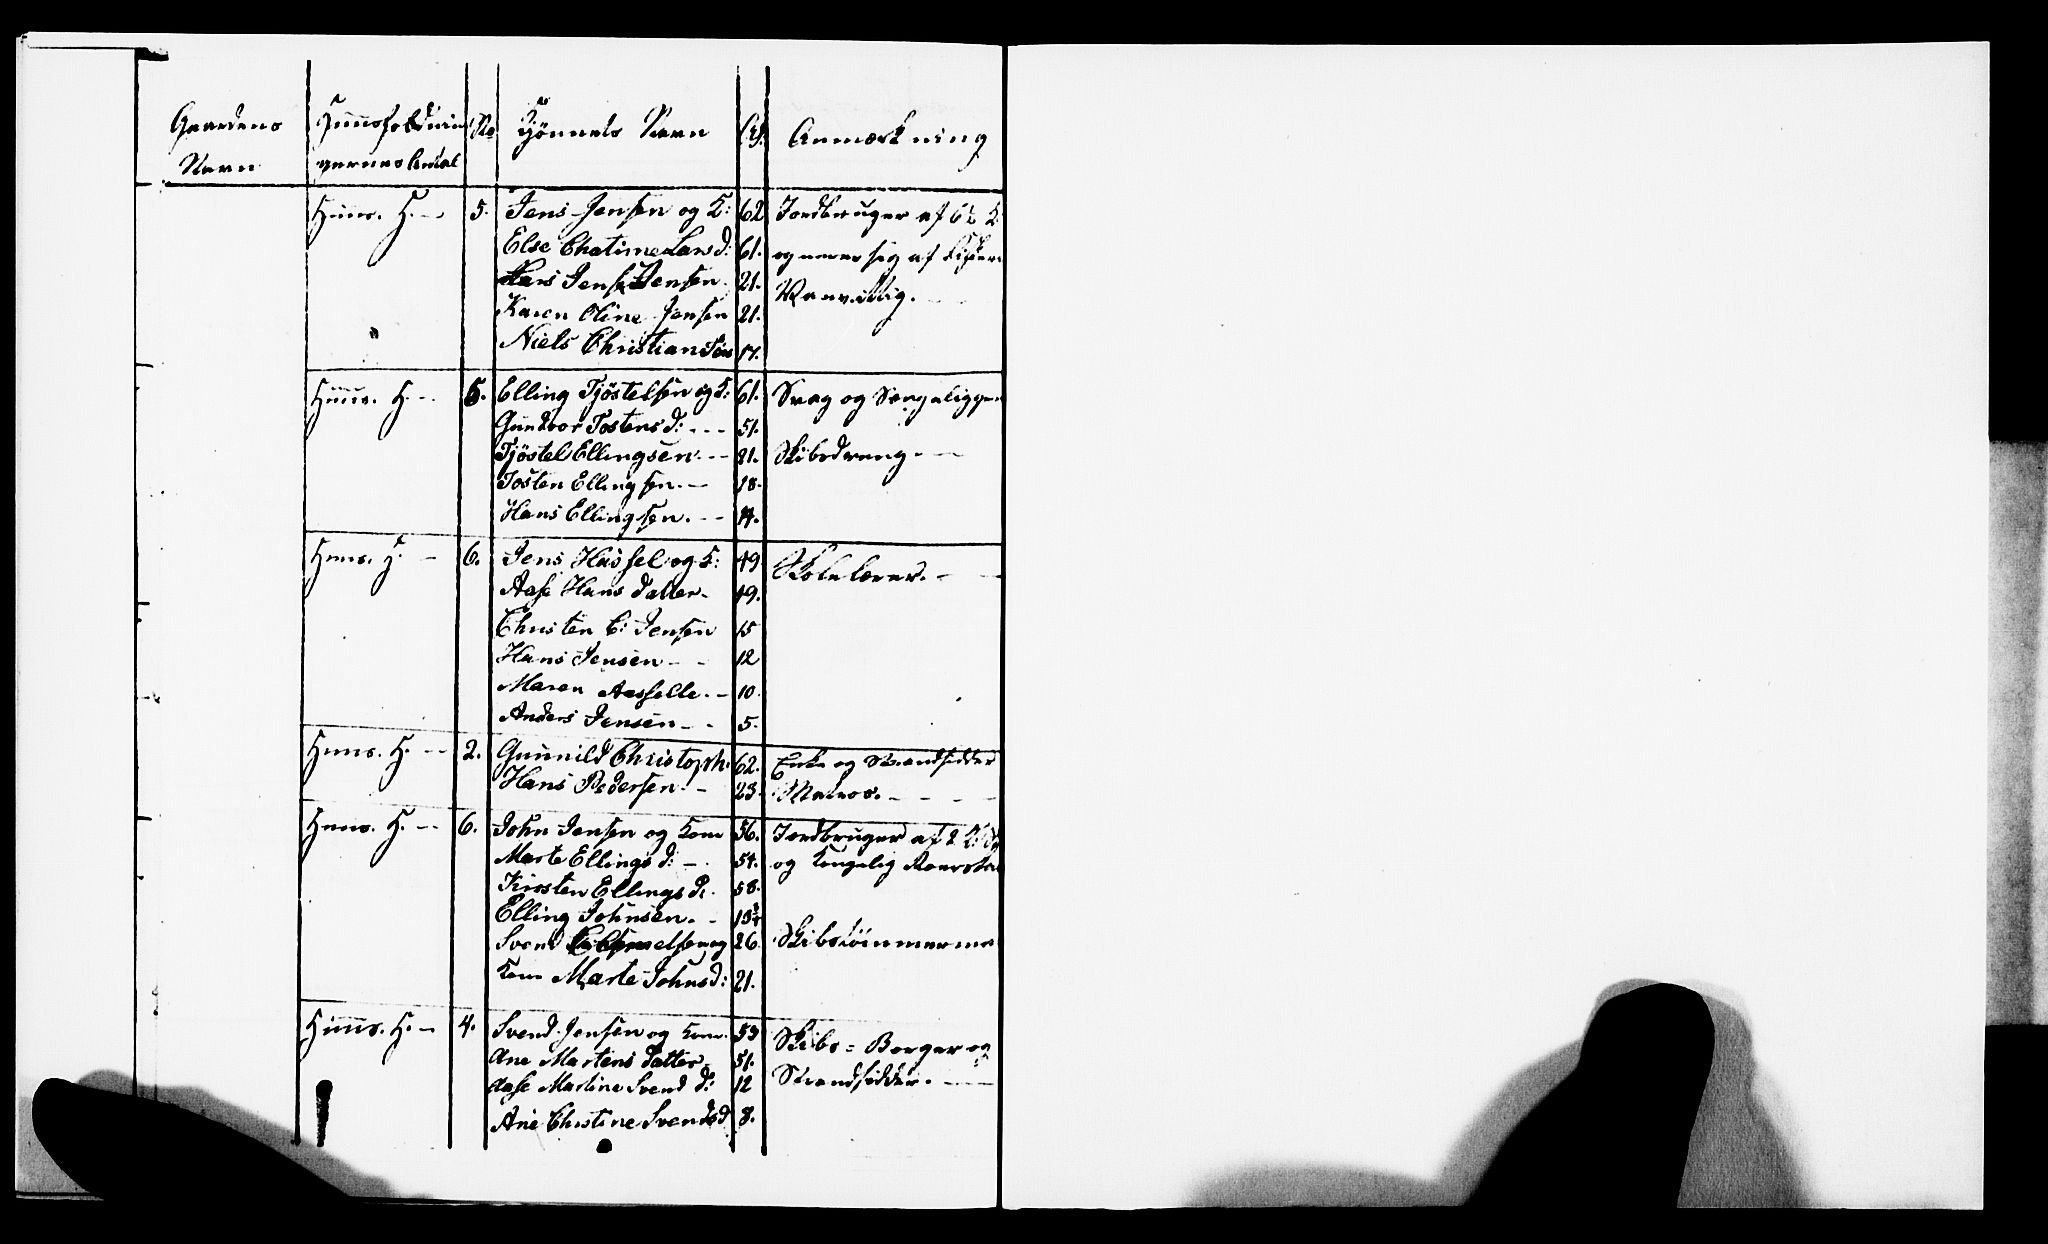 Gaardens Navn
Huusholdnin
gernes Antal
No
Kjönnets Navn
Anmærkning
Huus. H. — 5. Jens Jensen og K: 62 Jordbruger af
Else Chatrine Lars d: 61. og nærer sig af
Jens Jensen 21. Vanvittig.
Karen Oline Jensen 21.
Niels Christian Jens 17.
Huus. H. — 5. Elling Tjöstelsen og K: 61. Svag og Sengeligge
Gundvor Tostens d: — 51.
Tjöstel Ellingsen. — 21. Skibsdreng. —
Tosten Ellingsen. — 18.
Hans Ellingsen. — 14.
Huus. H. — 6. Jens Hassel og K: 49 Skolelærer. —
Aase Hans datter. 49.
Christen C: Jensen 15
Hans Jensen — 12
Maren Aasselle. — 10.
Anders Jensen — 5.
Huus. H. — 2. Gunnild Christoph. 62. Enke og Strandsidder
Hans Pedersen. — 23. Matros. —
Huus. H. — 6. John Jensen og Kone 56. Jordbruger af 2 K:
Marte Ellings d: — 54. og Kongelig
Kirsten Ellings d: 58.
Elling Johnsen. — 13¾
Svend og 26. Skibstömmerma
Kone Marte Johnsd: 21.
Huus. H. — 4. Svend Jensen og Kone. 53 Skibs= Borger og
Ane Martens Datter 51. Strandsidder. —
Aase Martine Svend d: 12
Ane Christine Svendsd 8.